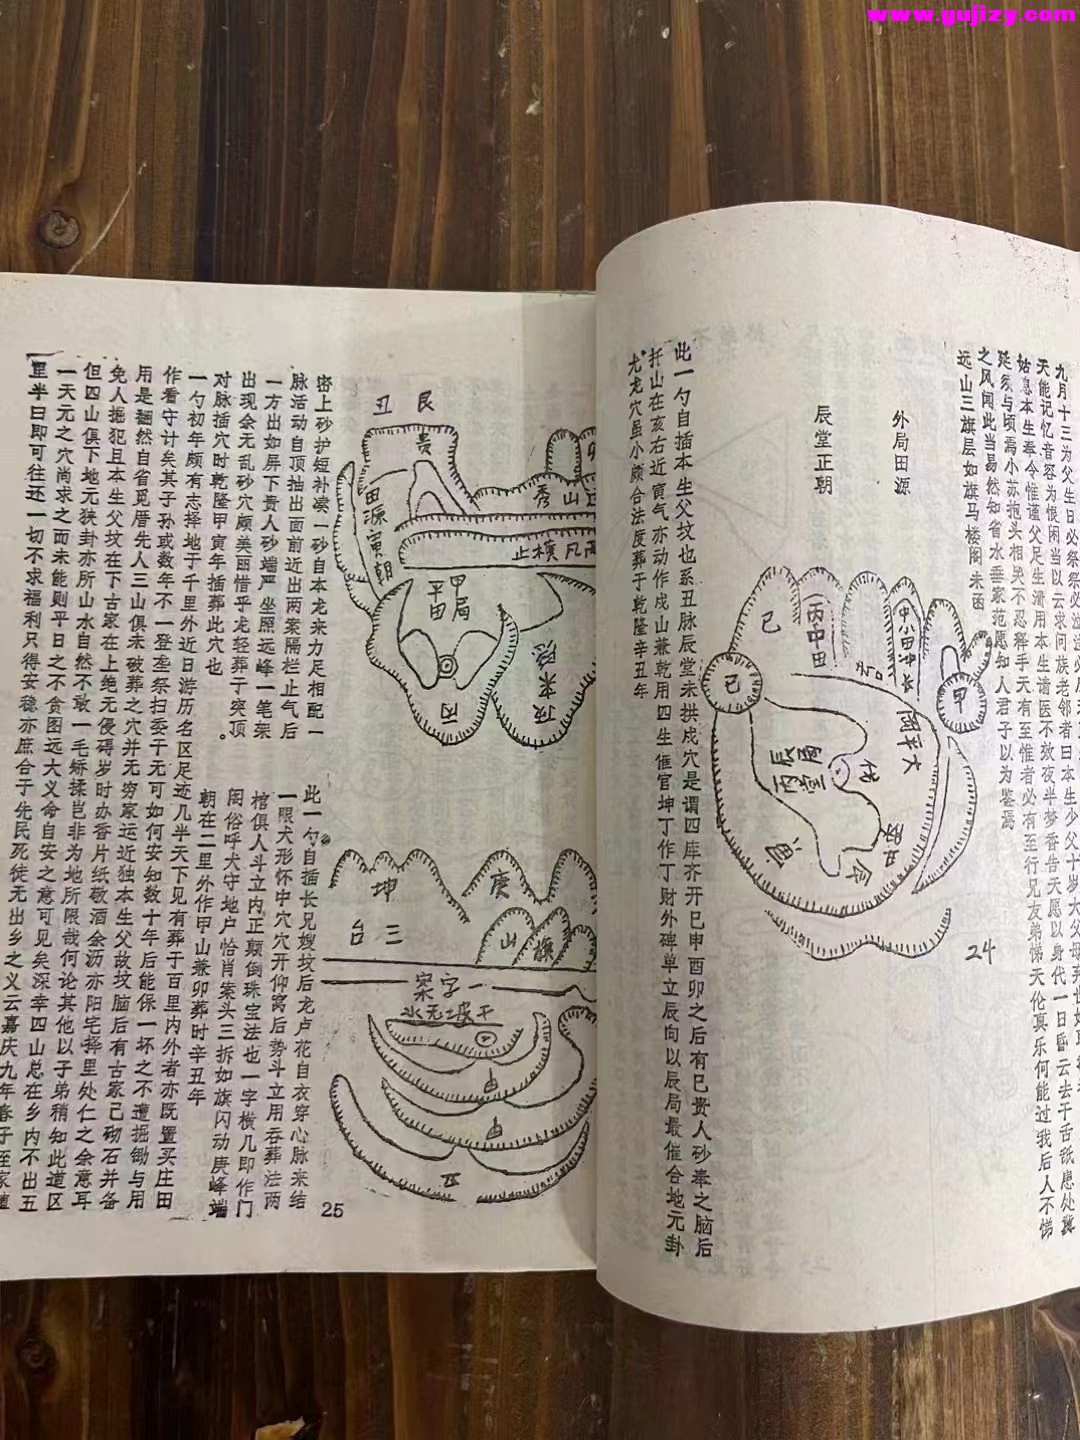 www.gujizy.com
九月十三为父生日必祭祭必
天能记忆音容为恨闲当以云求问族老邻者曰本生少父十岁大父母
姑息本生奉令惟谨父足生滑用本生请医不放夜半梦香告天愿以身代一日昏云去干舌舐患处冀
延须与顷焉小苏抱头相哭不忍释手天有至惟者必有至行兄友弟悌天伦真乐何能过我后人不悌
之风闻此当易然知省水垂家范愿知人君子以为鉴焉
远山三旗层如旗马楼阁未函
外局田源
辰堂正朝
巳
丙中田
甲
巳
24
此一勺自插本生父坟也系丑脉辰堂未拱戍穴是谓四库齐开巳申酉卯之后有巳贵人砂奉之脑后
扦山在亥右近寅气亦动作戍山兼乾用四生催官坤丁作丁财外碑单立辰向以辰局最催合地元卦
尤龙穴虽小颇合法度葬于乾隆辛丑年
艮
丑
贵
田源寅朝
秀山
甲局
平田
丙
密上砂护短补渎一砂自本龙来力足相配一
脉活动自顶抽出面前近出两案隔栏止气后
一方出如屏下贵人砂端严坐照远峰一笔架
出现佘无乱砂穴颇美丽惜乎龙轻葬于突顶
对脉插穴时乾隆甲寅年插葬此穴也。
坤
三台
庚
旗
山
一字案
干坡无水
由
由
此一勺自插长兄嫂坟后龙卢花自衣穿心脉来结
一眼犬形怀中穴穴开仰窝后势斗立用吞葬法两
棺俱人斗立内正颠倒珠宝法也一字横几即作门
阁俗呼犬守地户恰肖案头三拆如旗闪动庚峰端
朝在二里外作甲山兼卯葬时辛丑年
25
一勺初年颇有志择地于千里外近日游历名区足迹几半天下见有葬于百里内外者亦既置买庄田
作看守计矣其子孙或数年不一登垄祭扫委于无可如何安知数十年后能保一坏之不遭掘锄与用
用是翻然自省觅厝先人三山俱未破葬之穴并无穷家运近独本生父故坟脑后有古冢己砌石并备
免人掘犯且本生父坟在下古冢在上绝无侵碍岁时办香片纸敬酒余沥亦阳宅择里处仁之余意耳
但四山俱下地无狭卦亦所山水自然不敢一毛矫揉岂非为地所限哉何论其他以子弟稍知此道区
一天元之穴尚求之而未能则平日之不贪图远大义命自安之意可见矣深幸四山总在乡内不出五
里半日即可往还一切不求福利只得安稳亦庶合于先民死徒无出乡之义云嘉庆九年春子